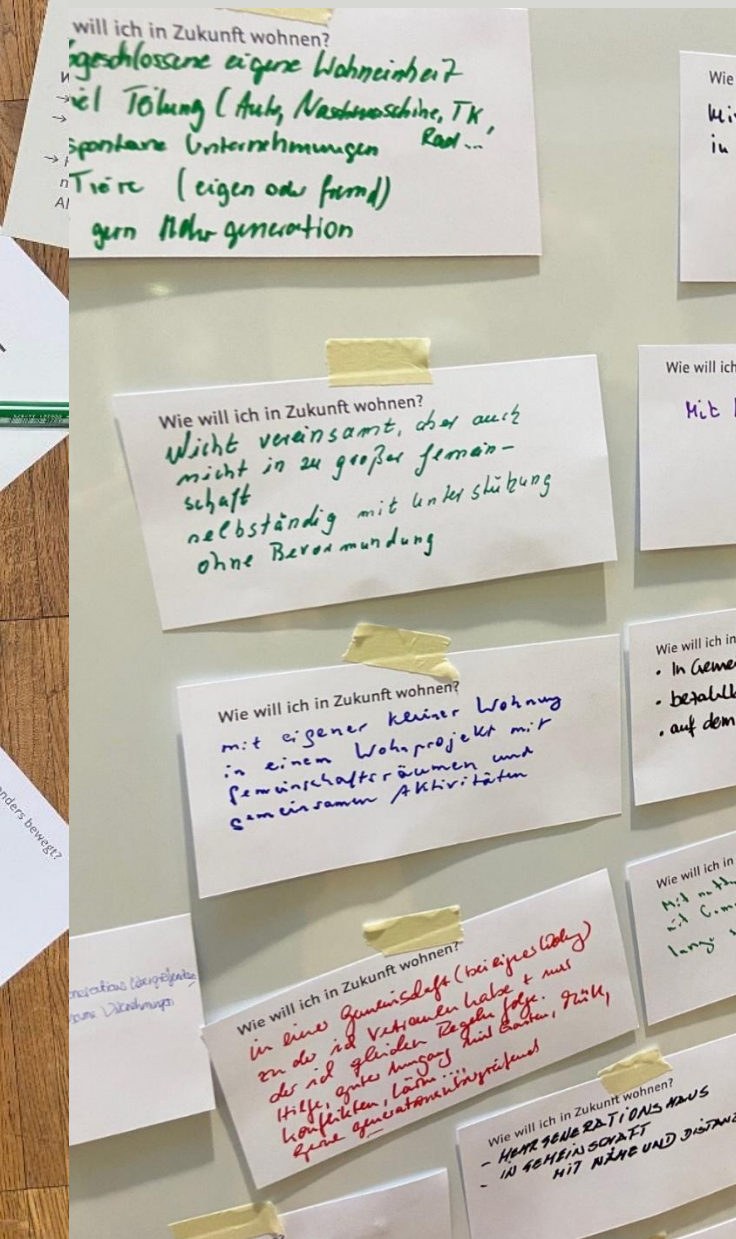 will ich in Zukunft wohnen?
geschlossene eigene Wohneinheit
viel Teilung (Auto, Waschmaschine, TK,
Rad...
spontane Unternehmungen
Tiere (eigen oder fremd)
gern Mehrgeneration
Wie will ich in Zukunft wohnen?
Nicht vereinsamt, aber auch
nicht in zu großer Gemein-
schaft
selbständig mit Unterstützung
ohne Bevormundung
Wie will ich in Zukunft wohnen?
mit eigener kleiner Wohnung
in einem Wohnprojekt mit
Gemeinschaftsräumen und
gemeinsamen Aktivitäten
Wie will ich in Zukunft wohnen?
in einer Gemeinschaft (bei eigner Wohng)
zu der ich Vertrauen habe + mit
der ich gleichen Regeln folge.
Hilfe, guter Umgang mit
Konflikten, Lärm ...,
gerne generationenübergreifend
Wie will ich in Zukunft wohnen?
- MEHRGENERATIONSHAUS
- IN GEMEINSCHAFT
- MIT NÄHE UND DISTANZ
Wie
in
Wie will ich
Mit
Wie will ich in
• In Geme
• bezahlb
• auf dem
Wie will ich in
Mit
mit
lang
anders bewegt?